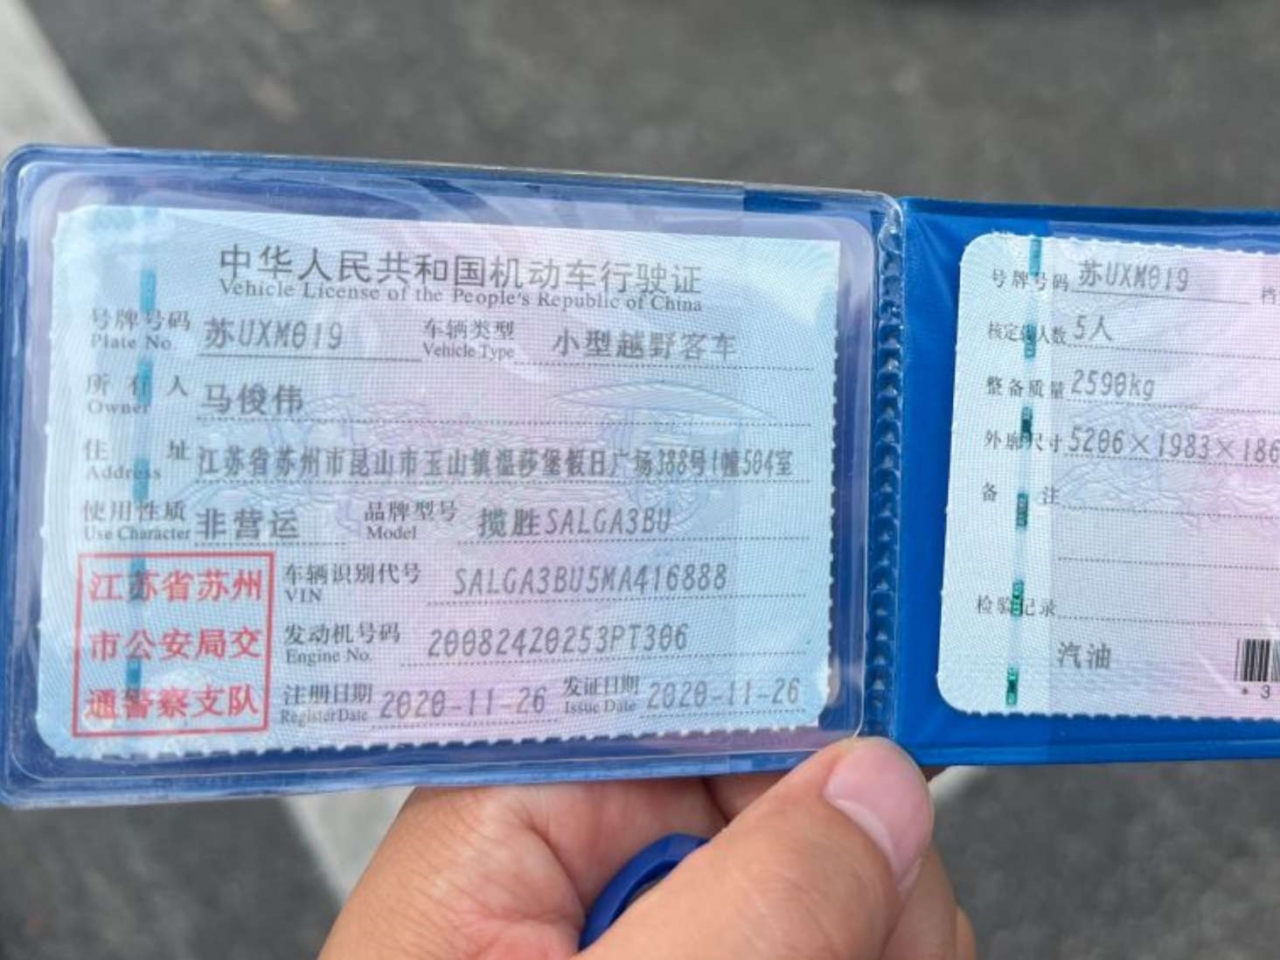 中华人民共和国机动车行驶证
Vehicle License of the People's Republic of China
号牌号码 苏UXM019 车辆类型 小型越野客车
Plate No. Vehicle Type
所有人 马俊伟
Owner
住址 江苏省苏州市昆山市玉山镇温莎堡假日广场388号1幢504室
Address
使用性质 非营运 品牌型号 揽胜SALGA3BU
Use Character Model
江苏省苏州
市公安局交
通警察支队
车辆识别代号 SALGA3BU5MA416888
VIN
发动机号码 20082420253PT306
Engine No.
注册日期 2020-11-26 发证日期 2020-11-26
Register Date Issue Date
号牌号码 苏UXM019 档
核定载人数 5人
整备质量 2590kg
外廓尺寸 5206×1983×186
备注
检验记录
汽油
*3